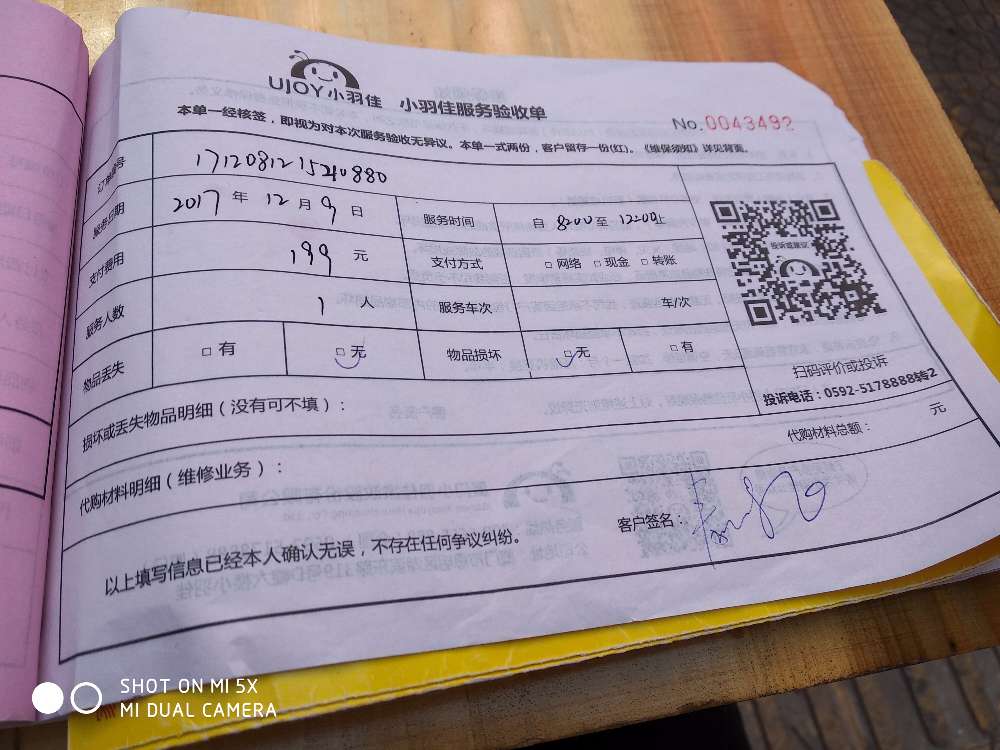 UJOY小羽佳 小羽佳服务验收单
No.0043492
本单一经核签，即视为对本次服务验收无异议。本单一式两份，客户留存一份(红)。《维保须知》详见背面。
订单编号 1712081215240880
服务日期 2017 年 12 月 9 日 服务时间 自 8:00 至 12:00 止
支付费用 199 元 支付方式 □ 网络 □ 现金 □ 转账
服务人数 1 人 服务车次 车/次
物品丢失 □ 有 □ 无 物品损坏 □ 无 □ 有
投诉或建议
扫码评价或投诉
投诉电话：0592-5178888转2
损坏或丢失物品明细（没有可不填）：
代购材料明细（维修业务）：
代购材料总额： 元
以上填写信息已经本人确认无误，不存在任何争议纠纷。
客户签名：
SHOT ON MI 5X
MI DUAL CAMERA